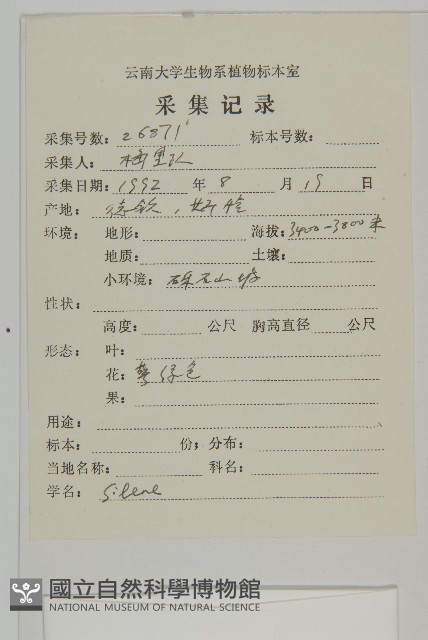 云南大学生物系植物标本室
采集记录
采集号数：26871 标本号数：
采集人：梅里队
采集日期：1992 年 8 月 19 日
产地：德钦，
环境： 地形： 海拔：3400-3800米
地质： 土壤：
小环境：砾石山坡
性状：
高度： 公尺 胸高直径 公尺
形态： 叶：
花：萼绿色
果：
用途：
标本： 份；分布：
当地名称： 科名：
学名：Silene
國立自然科學博物館
NATIONAL MUSEUM OF NATURAL SCIENCE